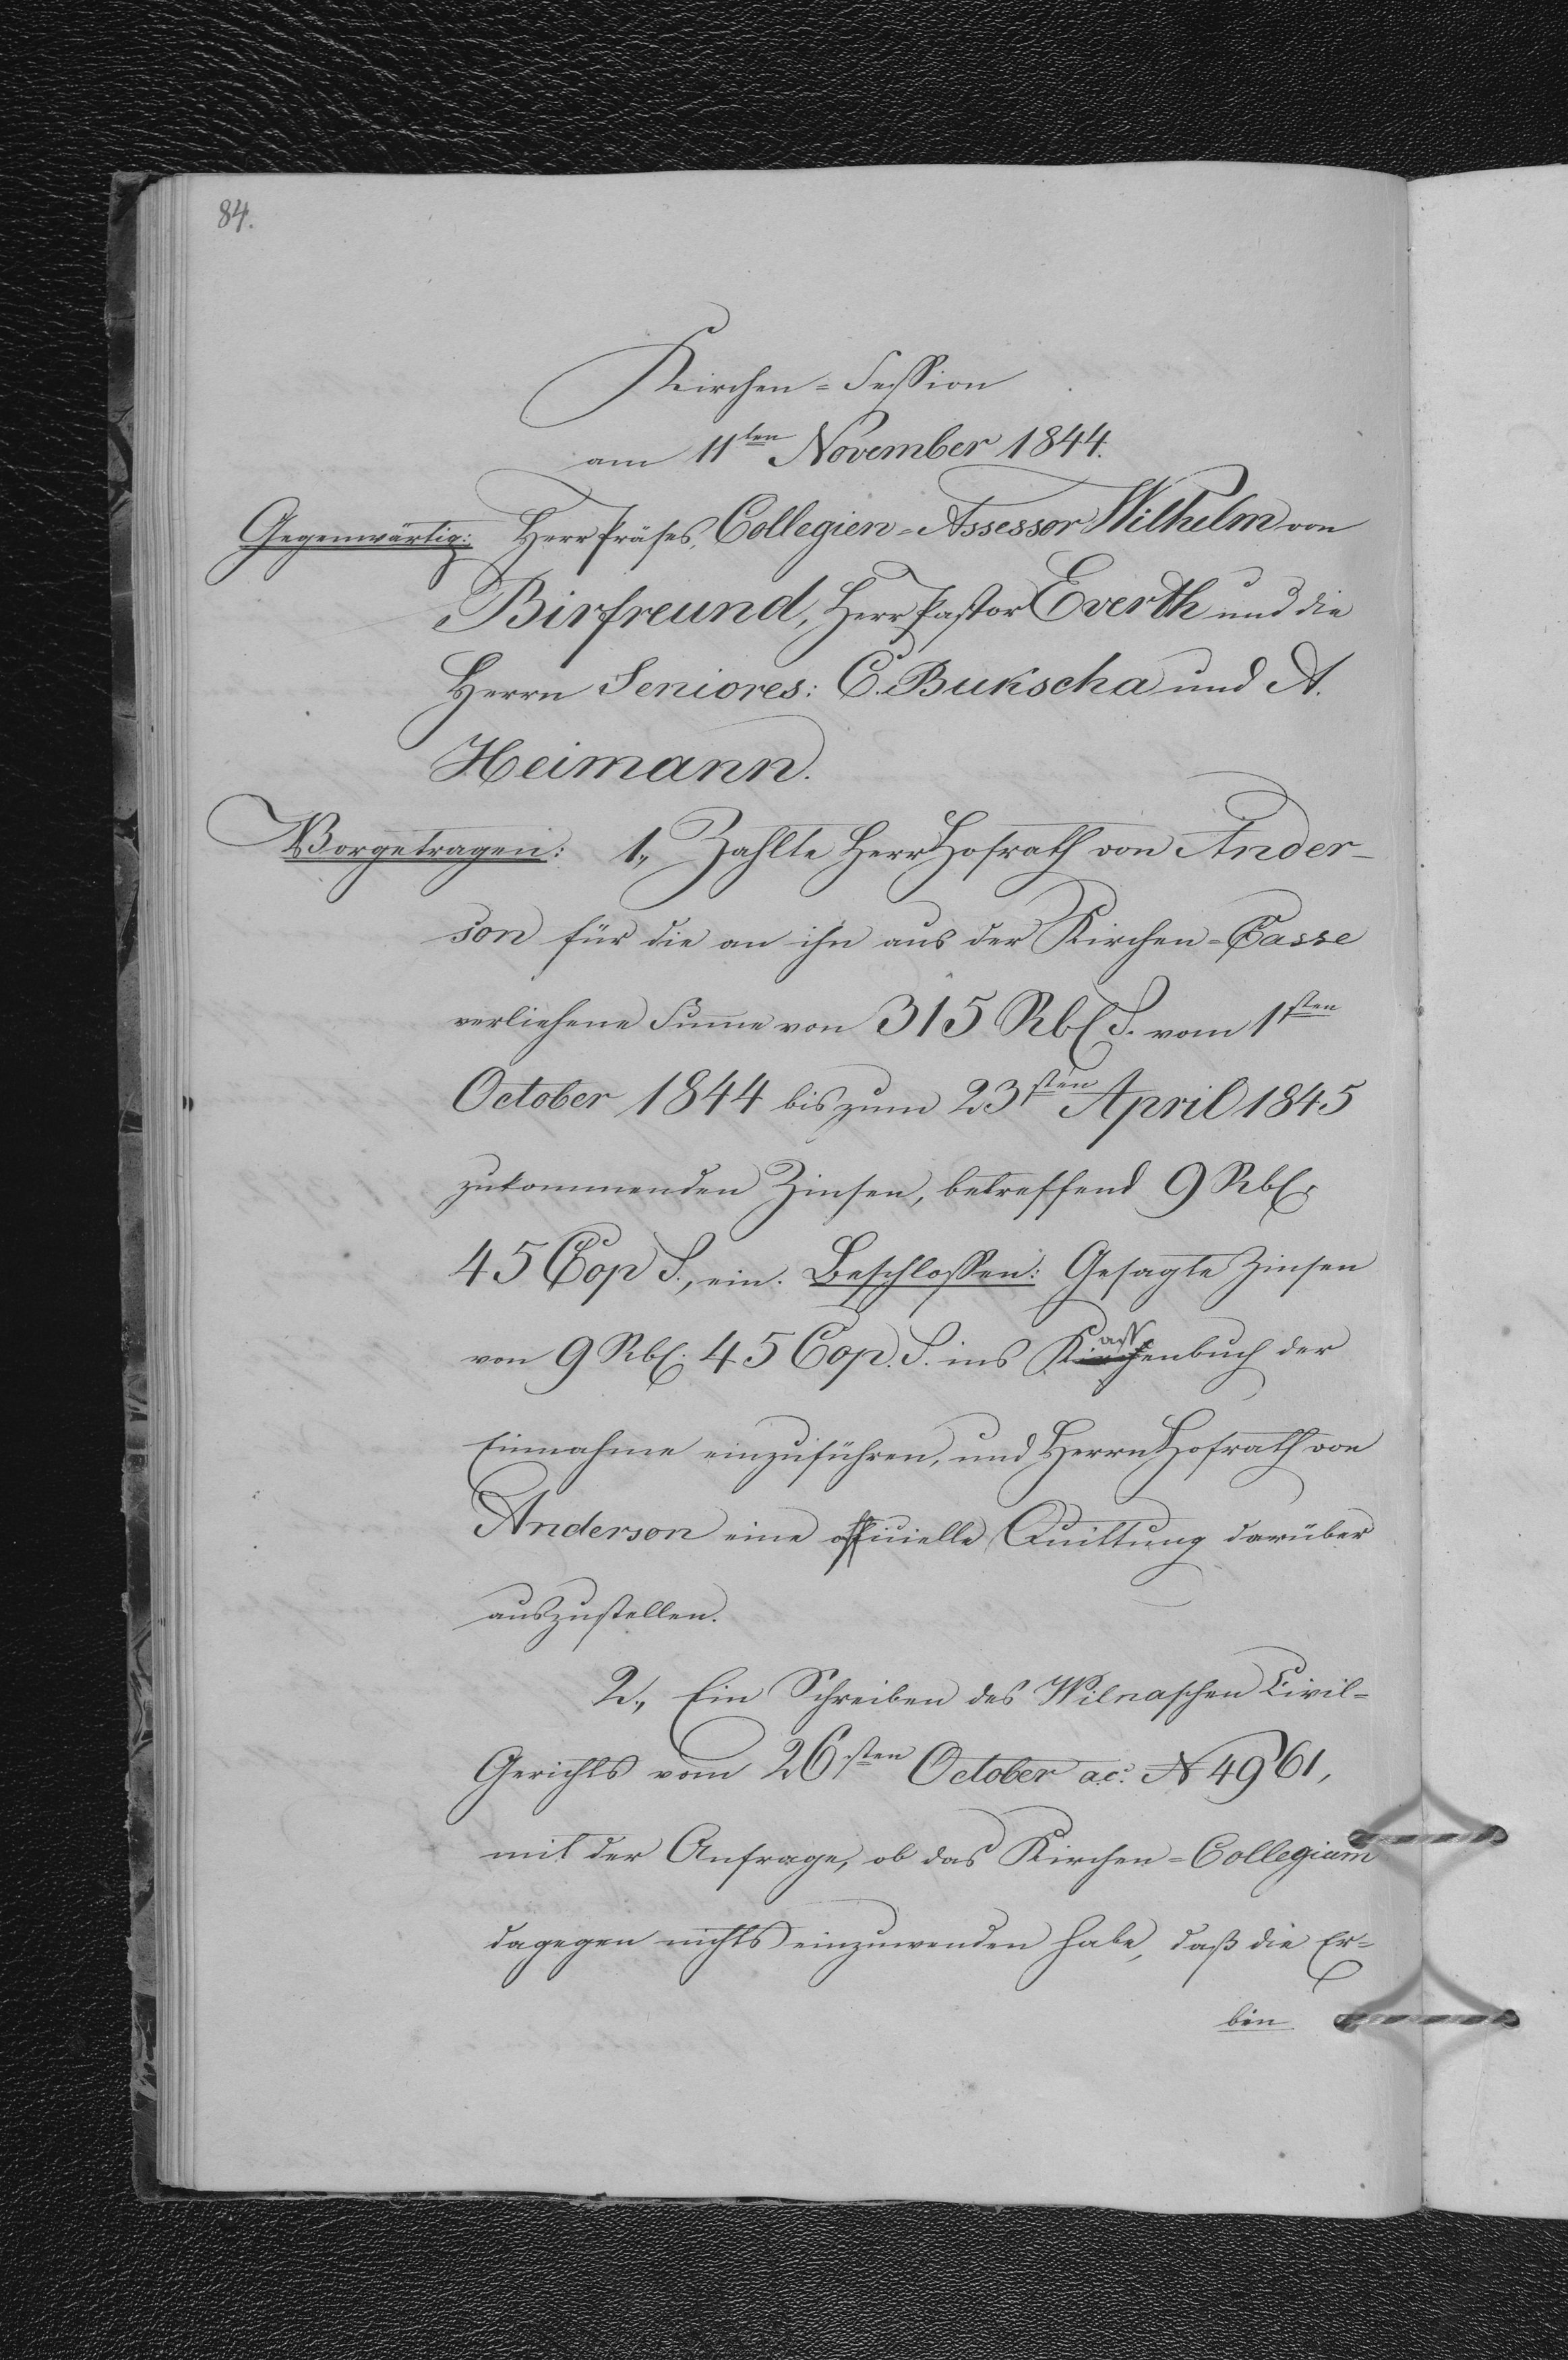 84.
Kirchen=Session
am 11ten November 1844.
Gegenwärtig: Herr Präses, Collegien=Assessor Wilhelm von
Birfreund, Herr Pastor Everth und die
Herrn Seniores: C. Bukscha und A.
Heimann.
Vorgetragen: 1., Zahlte Herr Hofrath von Ander-
son für die an ihn aus der Kirchen=Casse
verliehene Summe von 315 Rbl S. vom 1sten
October 1844 bis zum 23sten April 1845
zukommenden Zinsen, betreffend 9 Rbl.
45 Cop S., ein. Beschlossen: Gesagte Zinsen
von 9 Rbl. 45 Cop. S. ins Kassenbuch der
Einnahme einzuführen, und Herrn Hofrath von
Anderson eine officielle Quittung darüber
auszustellen.
2., Ein Schreiben des Wilnaschen Civil=
Gerichts vom 26sten October a.c. № 4961,
mit der Anfrage, ob das Kirchen=Collegium
dagegen nichts einzuwenden habe, daß die Er=
ben